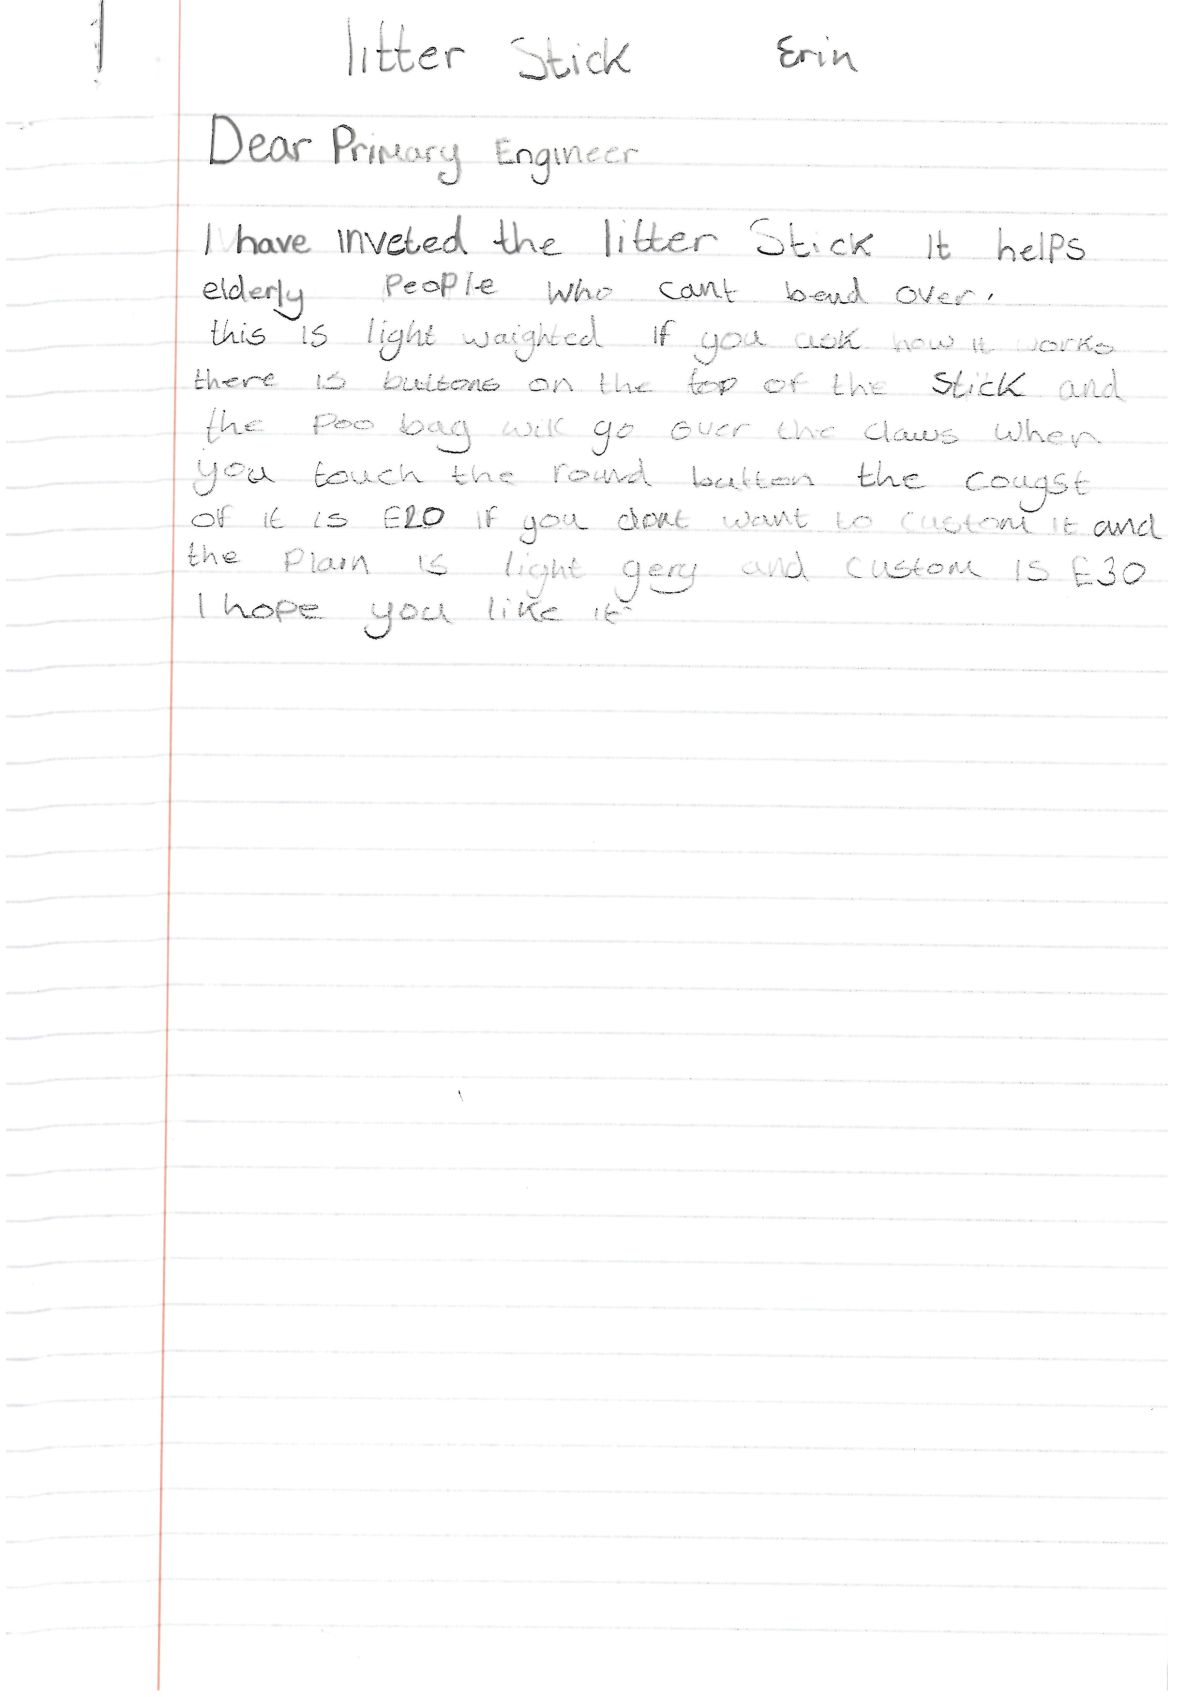 litter Stick Erin
Dear Primary Engineer
I have inveted the litter Stick It helps
elderly People who cant bend over.
this is light waighted if you ask how it works
there is buttons on the top of the Stick and
the Poo bag will go over the claws when
you touch the round button the cougst
of it is £20 if you dont want to custom it and
the Plain is light gery and custom is £30
I hope you like it